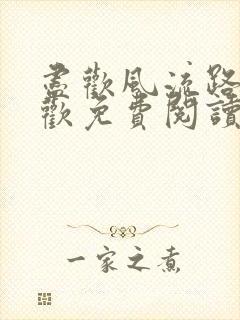 盡歡風流路
歡免費閱讀
一家之煮